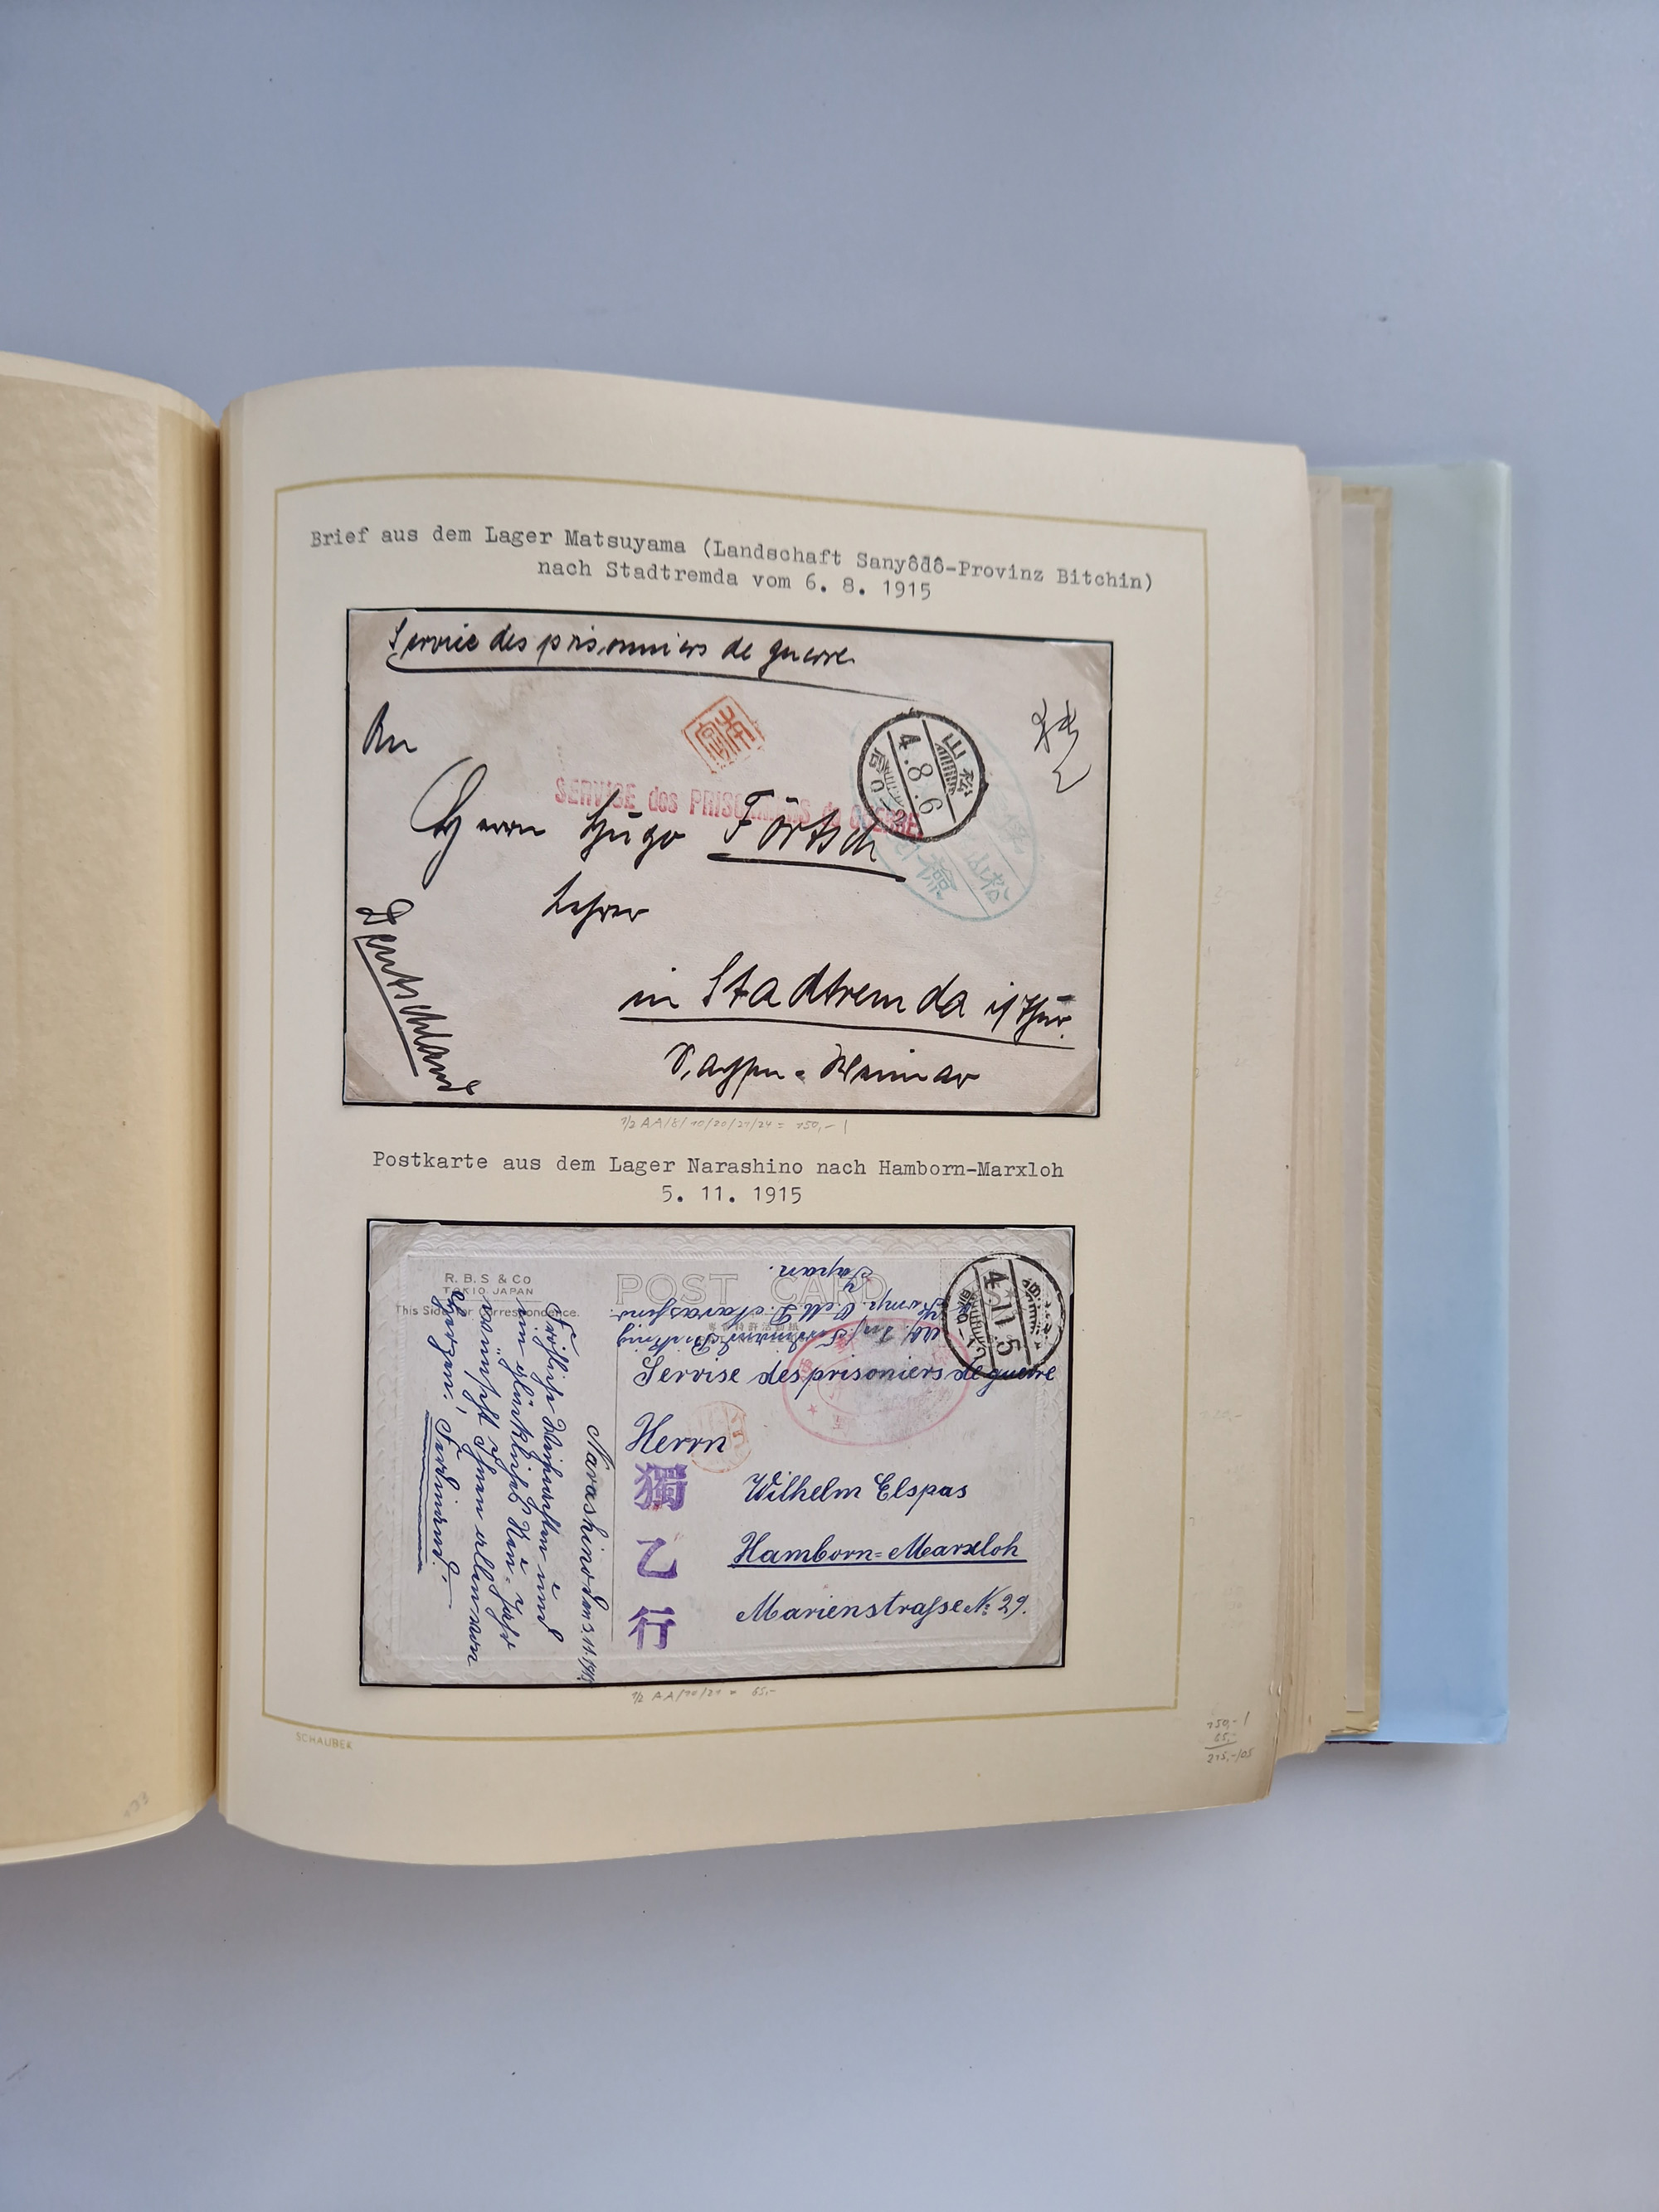 Brief aus dem Lager Matsuyama (Landschaft Sanyôdô-Provinz Bitchin)
nach Stadtremda vom 6. 8. 1915
Service des prisonniers de guerre
An
SERVICE des PRISONNIERS de GUERRE
山松
4.8.6
Herrn Hugo Förtsch
Lehrer
Deutschland
in Stadtremda i/Thür.
Sachsen-Weimar
1/2 AA/8/10/20/21/24 = 150,-
Postkarte aus dem Lager Narashino nach Hamborn-Marxloh
5. 11. 1915
R.B.S & Co
TOKIO JAPAN
This Side for Correspondence.
POST CARD
4.11.5
Japan.
Narashino
Servise des prisoniers de guerre
Herrn
Wilhelm Elspas
Hamborn=Marxloh
Marienstrasse № 29.
獨
乙
行
Narashino den 5.11.1915
Fröhliche Weihnachten und
ein glückliches Neu-Jahr
wünscht Ihnen allen von
Herzen, Ferdinand.
1/2 AA/20/21 = 65,-
SCHAUBEK
150,-
65,-
215,-/05